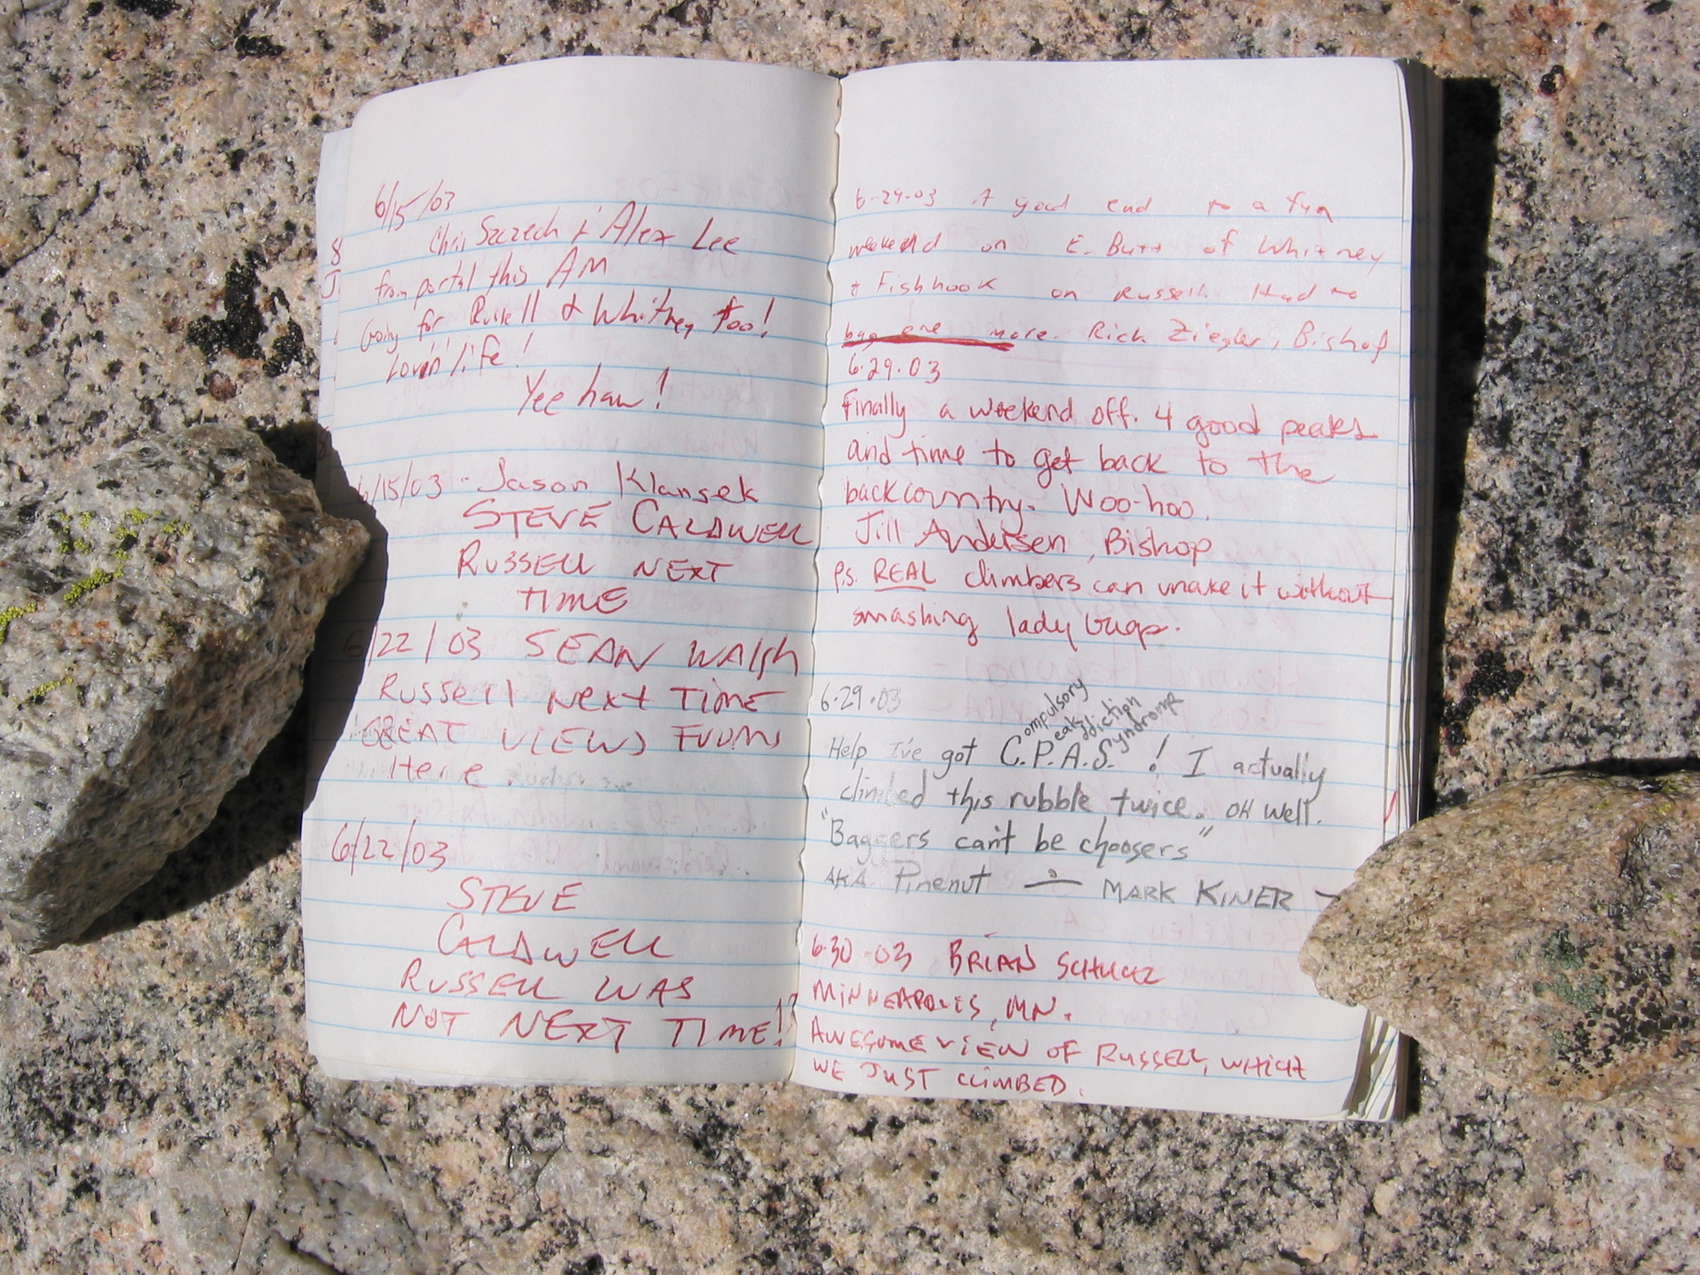 6/15/03
Chris Szczech & Alex Lee
from portal this AM
Going for Russell & Whitney too!
Lovin' life!
Yee haw!
6/15/03 - Jason Klansek
STEVE CALDWELL
RUSSELL NEXT
TIME
6/22/03 SEAN WALSH
RUSSEll NExt TIME
GREAT VIEWS FROM
Here.
6/22/03
STEVE
CALDWELL
RUSSELL WAS
NOT NEXT TIME!
8
J
6-29-03 A good end to a fun
weekend on E. Butt of Whitney
+ Fishhook on Russell. Had to
bag one more. Rick Ziegler, Bishop
6.29.03
Finally a weekend off. 4 good peaks
and time to get back to the
backcountry. Woo-hoo.
Jill Andersen, Bishop
p.s. REAL climbers can make it without
smashing lady bugs.
6.29.03
ompulsory
eaks
ddiction
yndrome
Help I've got C.P.A.S. ! I actually
climbed this rubble twice. OH well.
"Baggers can't be choosers"
AKA Pinenut — MARK KINER —
6.30.03 BRIAN SCHULZ
MINNEAPOLIS, MN.
AWESOME VIEW OF RUSSELL, WHICH
WE JUST CLIMBED.